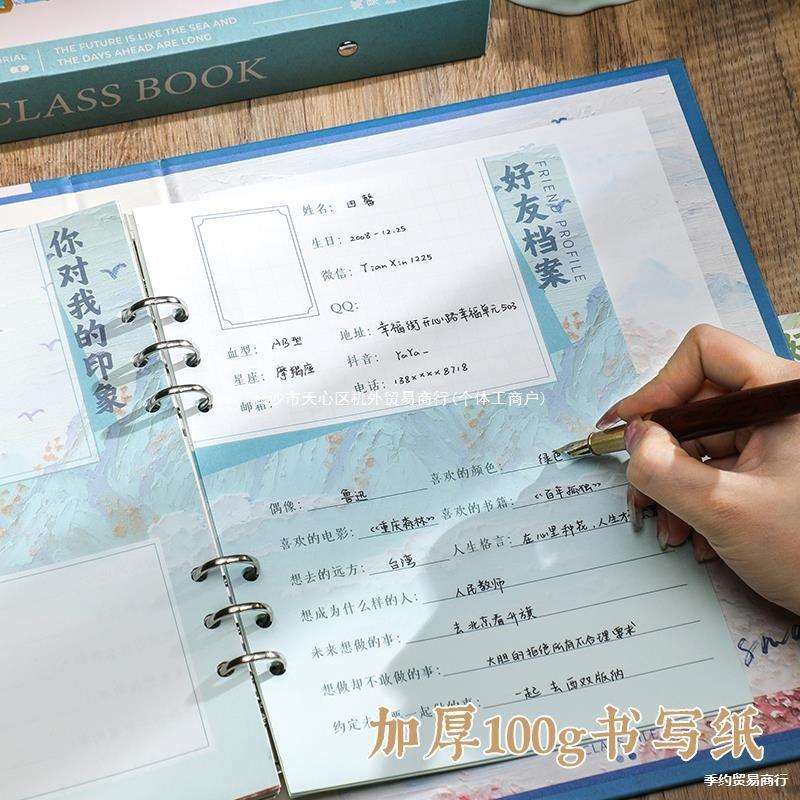 THE FUTURE IS LIKE THE SEA AND
THE DAYS AHEAD ARE LONG
CLASS BOOK
你对我的印象
好友档案
FRIEND PROFILE
姓名: 田馨
生日: 2008-12.25
微信: TianXin1225
QQ:
地址: 幸福街开心路幸福单元503
血型: AB型
抖音: YaYa-
星座: 摩羯座
电话: 138××××8718
邮箱:
沙市天心区机外贸易商行(个体工商户)
偶像: 鲁迅
喜欢的颜色: 绿色
喜欢的电影: 《重庆森林》
喜欢的书籍: 《百年孤独》
想去的远方: 台湾
人生格言: 在心里种花,人生不
想成为什么样的人: 人民教师
未来想做的事: 去北京看升旗
想做却不敢做的事: 大胆的拒绝所有不合理要求
约定 要一起做的事: 一起去西双版纳
加厚100g书写纸
季约贸易商行